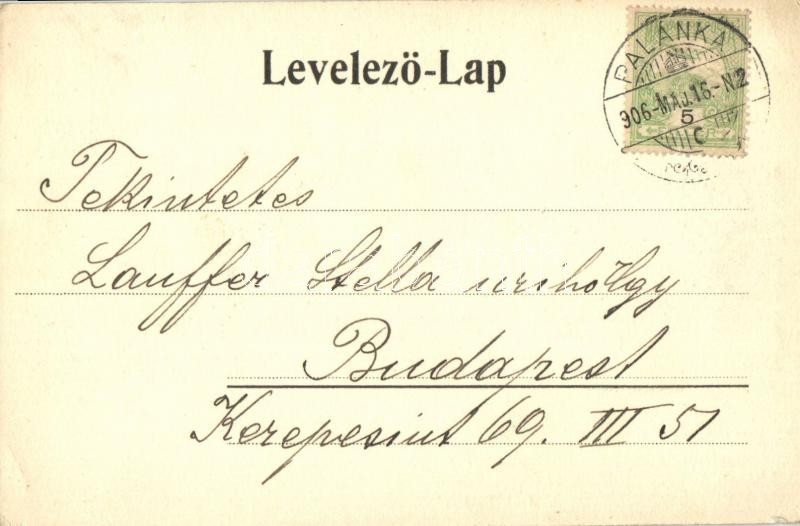 Levelezö-Lap
PALÁNKA
906-MÁJ.16.-N2
5
C
Tekintetes
Lauffer Stella urihölgy
Budapest
Kerepesiut 69. III 51